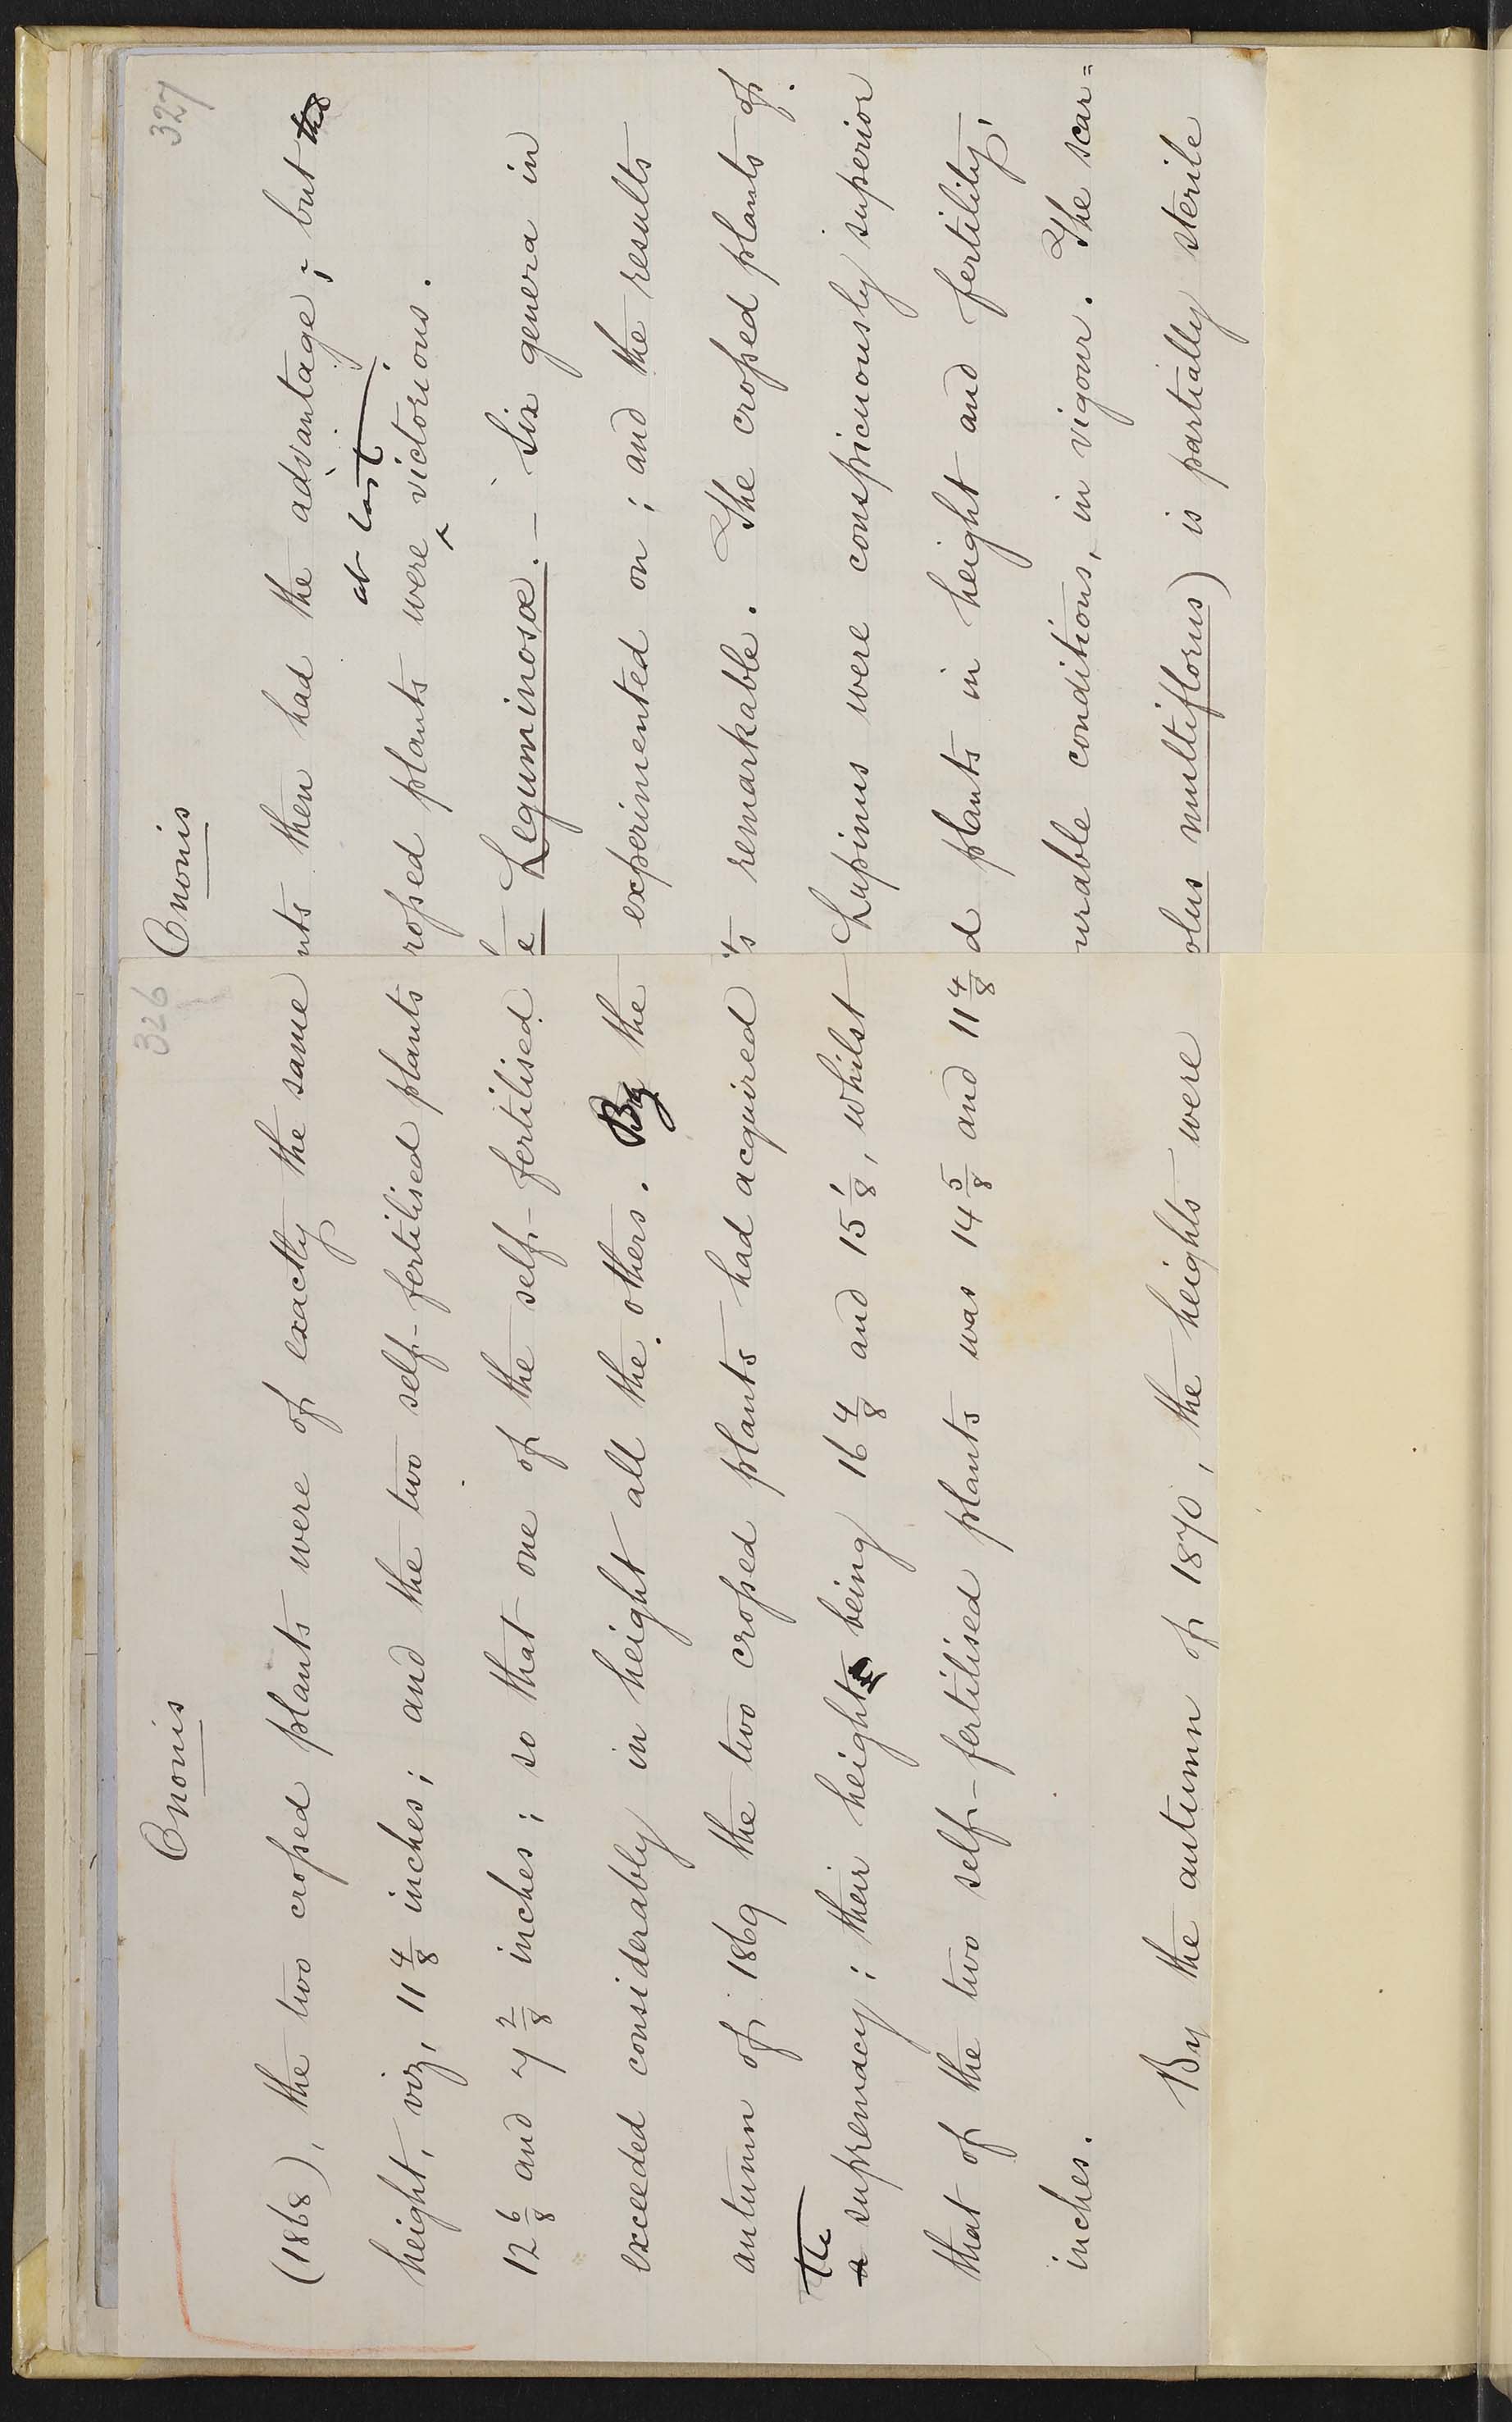 326
Ononis
(1868), the two crossed plants were of exactly the same
height, viz, 11 4/8 inches; and the two self-fertilised plants
12 6/8 and 7 2/8 inches; so that one of the self-fertilised
exceeded considerably in height all the others. By the
autumn of 1869 the two crossed plants had acquired
the
a supremacy; their height being 16 4/8 and 15 1/8, whilst
that of the two self-fertilised plants was 14 5/8 and 11 4/8
inches.
By the autumn of 1870, the heights were
327
Ononis
nts then had the advantage; but the
at last
rossed plants were ‸ victorious.
e Leguminosæ. — Six genera in
experimented on; and the results
ts remarkable. The crossed plants of
Lupinus were conspicuously superior
d plants in height and fertility;
urable conditions, in vigour. The scar=
olus multiflorus) is partially sterile